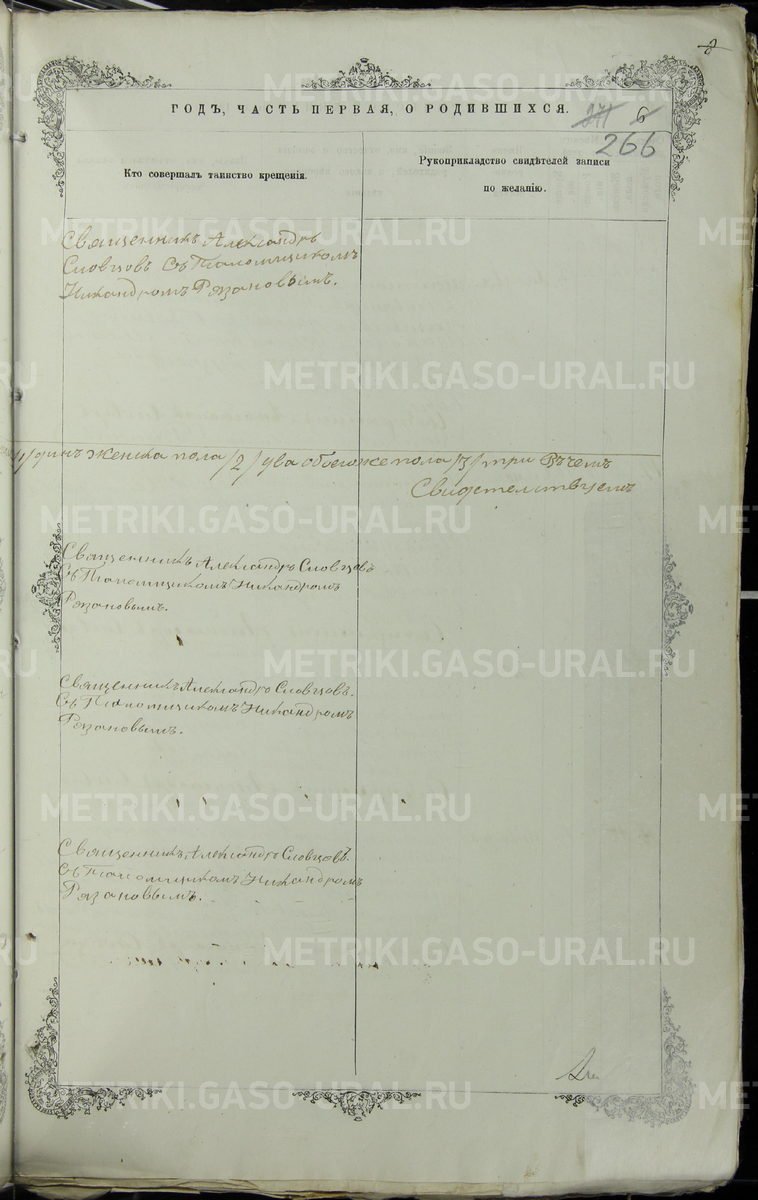 ГОДЪ, ЧАСТЬ ПЕРВАЯ, О РОДИВШИХСЯ.
271 6
266
Кто совершалъ таинство крещенія.
Рукоприкладство свидѣтелей записи
по желанію.
Священникъ Александръ
Словцовъ съ Псаломщикомъ
Никандромъ Рязановымъ.
/1/ динъ женска пола /2/ два обоего же пола /3/ три Въ чемъ
Свидетелствуемъ
Священникъ Александръ Словцовъ
Съ Псаломщикомъ Никандромъ
Рязановымъ.
Священникъ Александръ Словцовъ.
Съ Псаломщикомъ Никандромъ
Рязановымъ.
Священникъ Александръ Словцовъ.
съ Псаломщикомъ Никандромъ
Рязановымъ.
METRIKI.GASO-URAL.RU